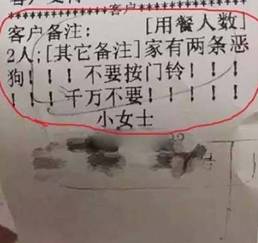 ************客户************
客户备注: [用餐人数]
2人;[其它备注]家有两条恶
狗!!!不要按门铃!!!!
!!!千万不要!!!!!!
小女士